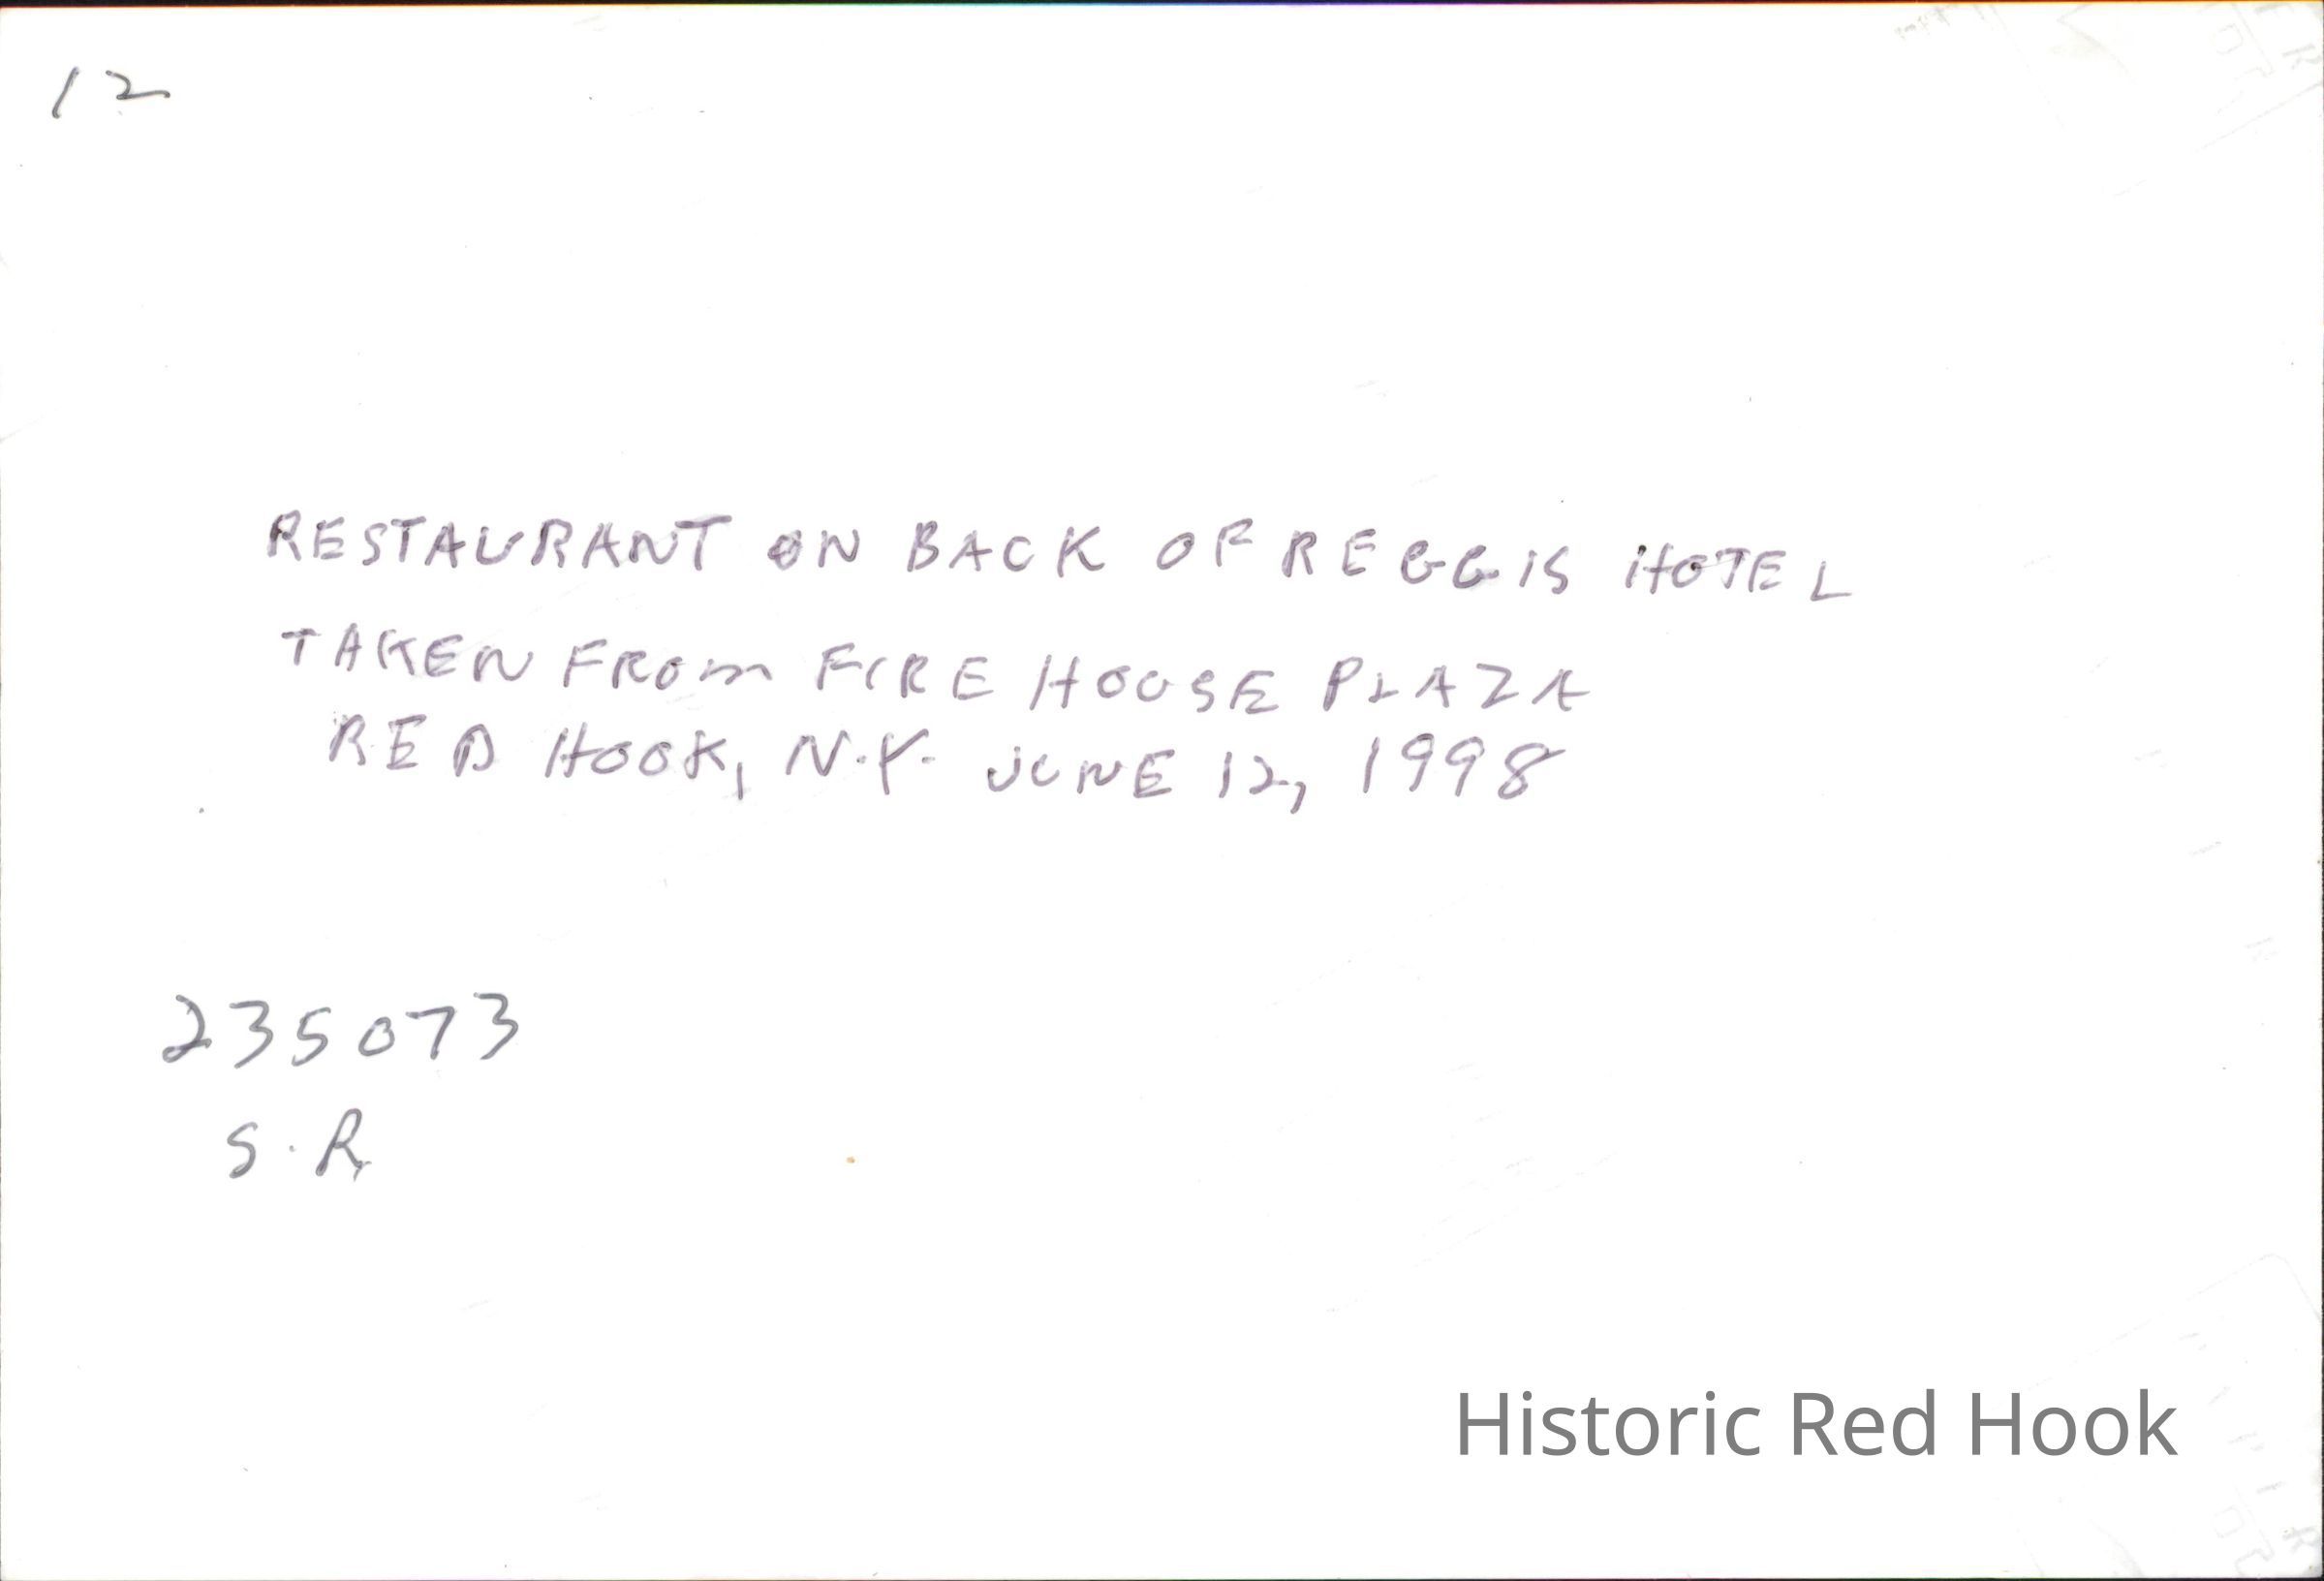 12
RESTAURANT ON BACK OF REGGIS HOTEL
TAKEN FROM FIRE HOUSE PLAZA
RED HOOK, N.Y. JUNE 12, 1998
235073
S.R
Historic Red Hook